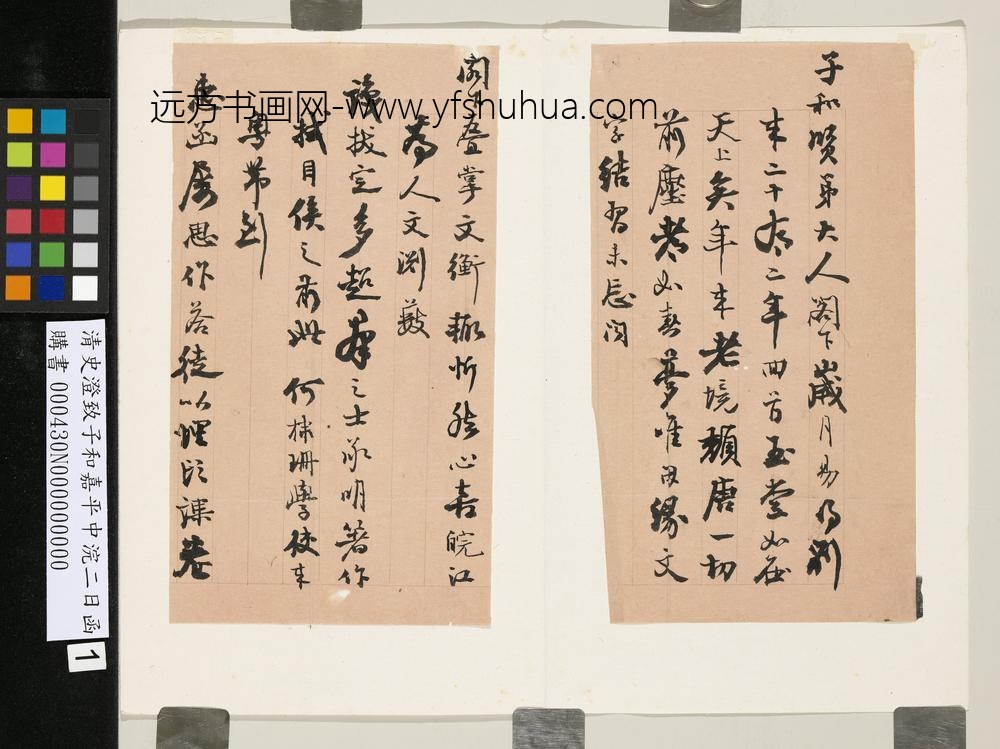 远方书画网-www.yfshuhua.com
子和賢弟大人閣下歲月易得別
來二十有二年回首玉堂如在
天上矣年來老境頹唐一切
前塵如春夢唯緣文
字結習未忘聞
閣下疊掌文衡輒忻然心喜皖江
為人文淵藪
識拔定多超羣之士承明著作
拭目俟之前此何珊學使來
粵帶到
惠函屢思作答徒以課卷
清史澄致子和嘉平中浣二日函
購書 000430N000000000
1